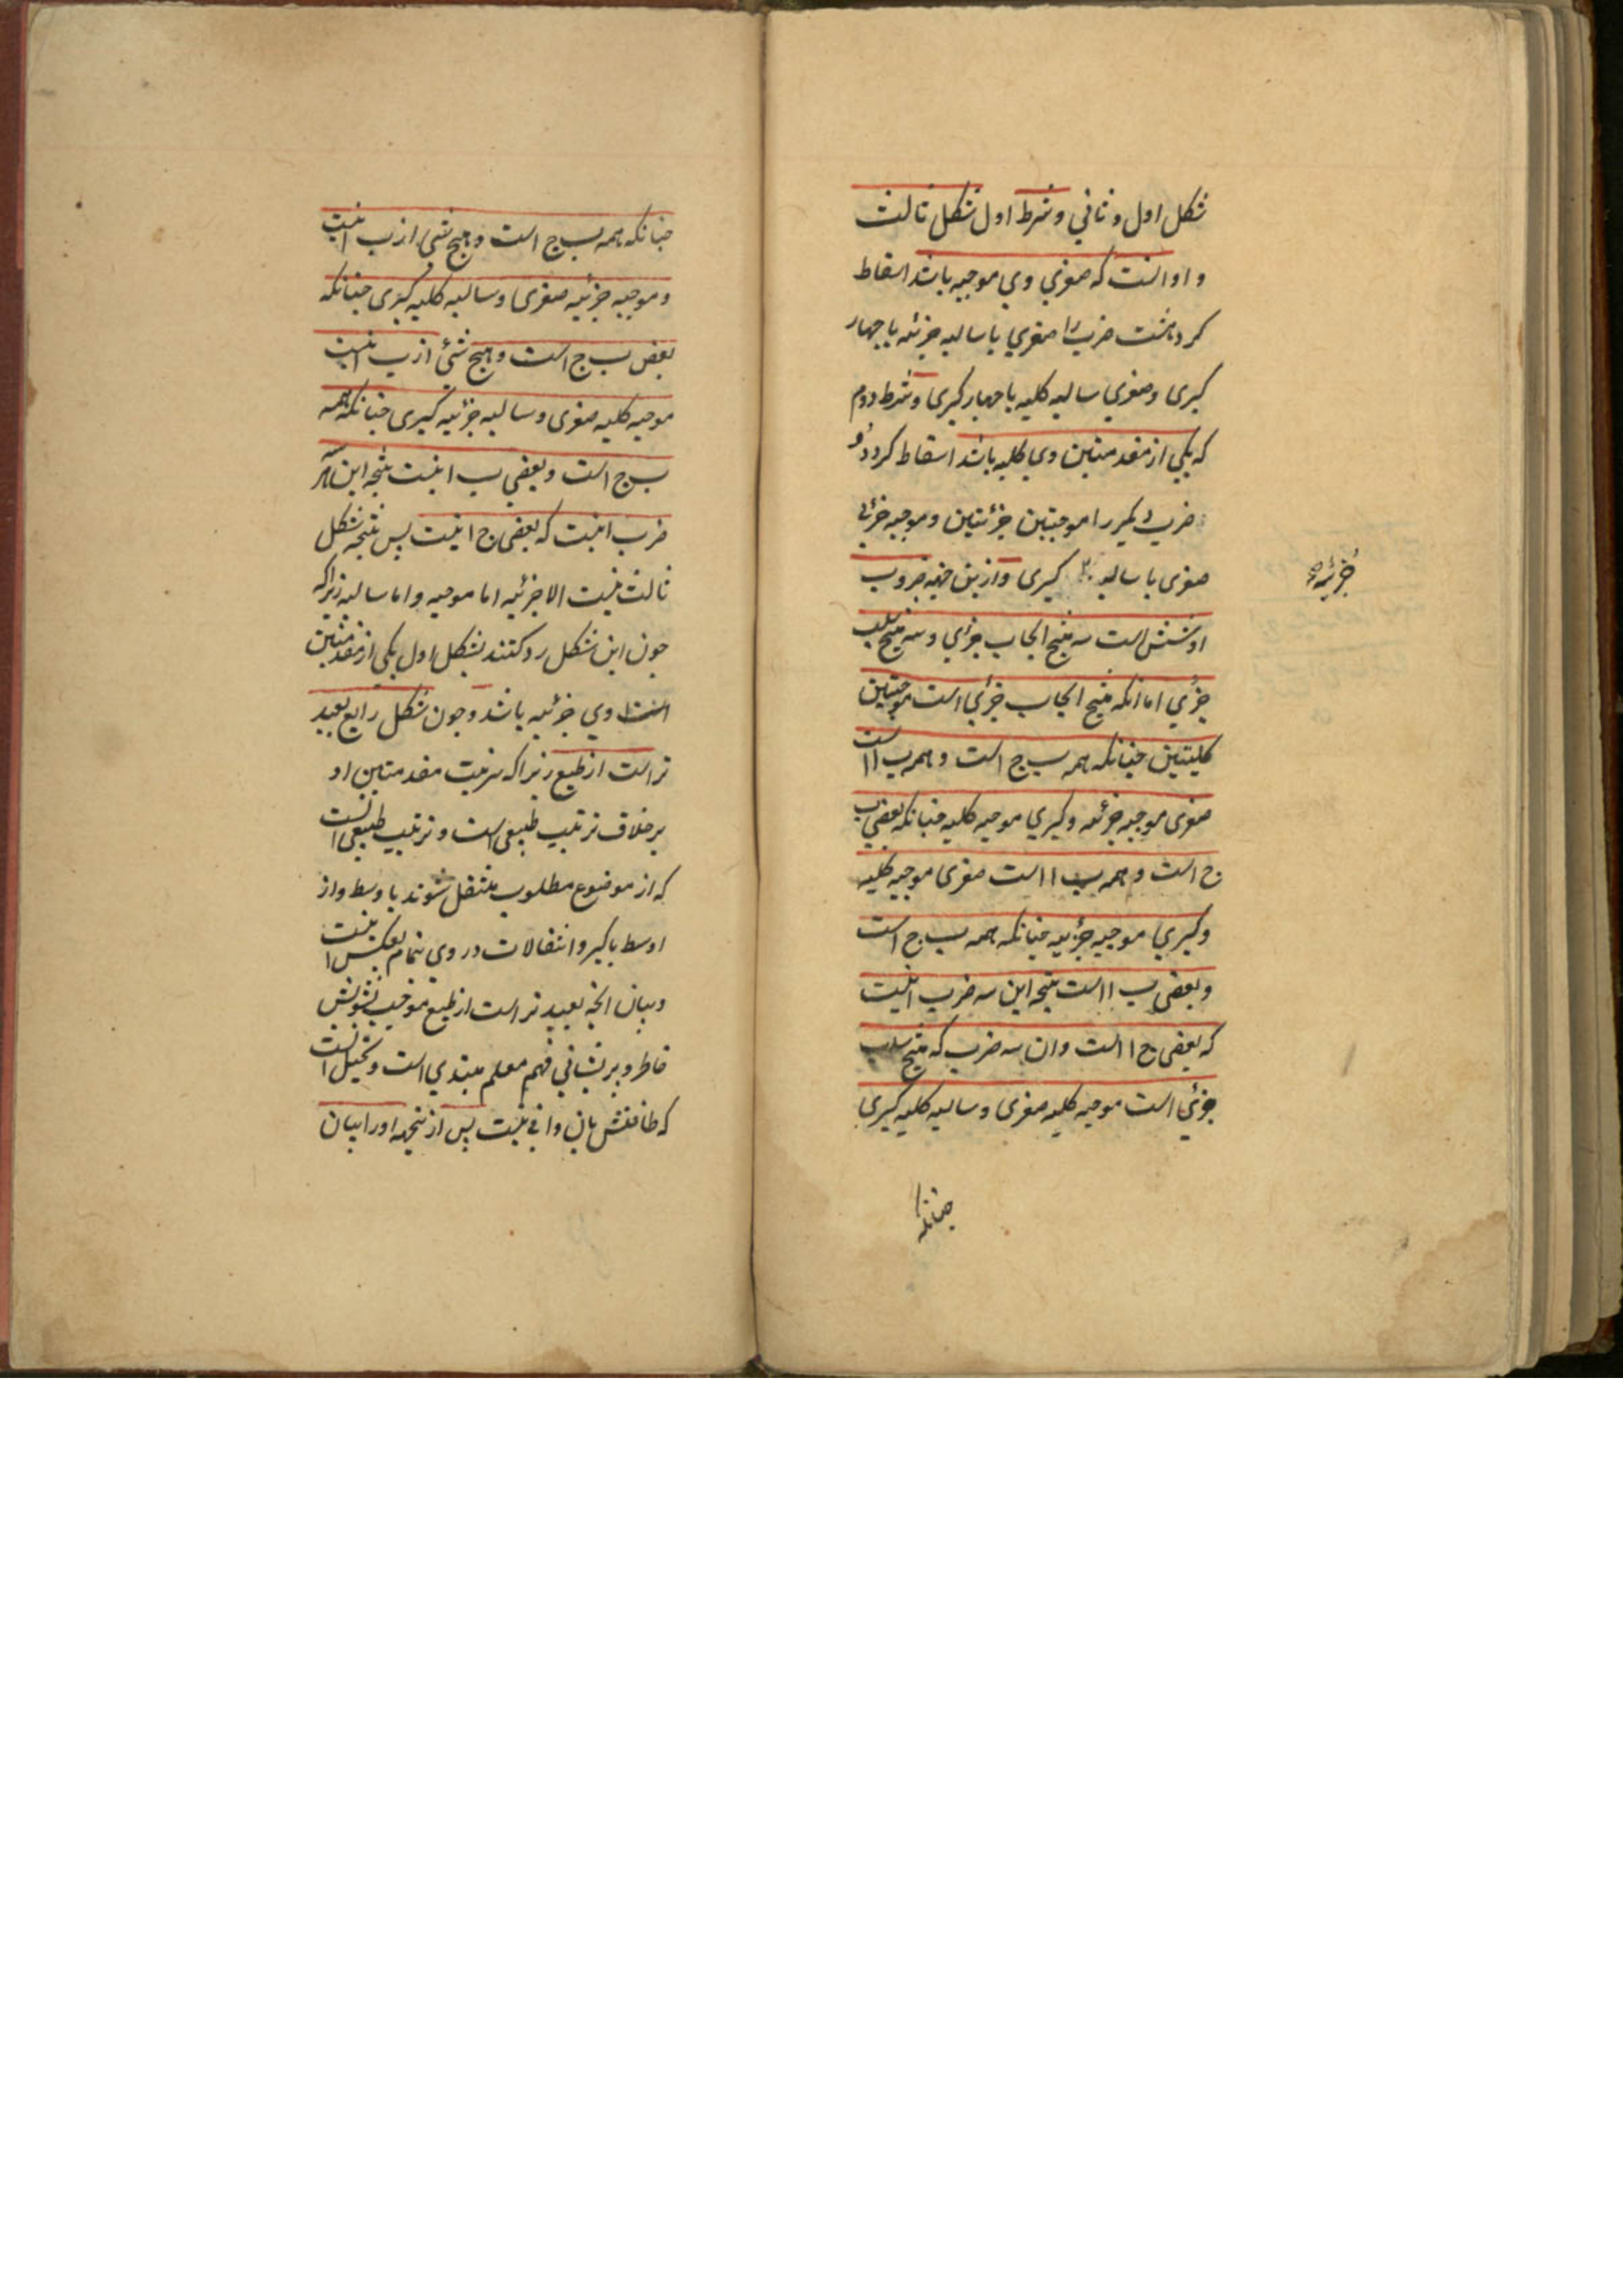 شکل اول و ثانی و شرط اول شکل ثالث
و او انست که صغری وی موجبه باشد اسقاط
کرد هشت ضرب را صغری با سالبه جزئیه با چهار
کبری و صغری سالبه کلیه با چهار کبری و شرط دوم
که یکی از مقدمتین وی کلیه باشد اسقاط کرد دو
ضرب دیگر را موجبتین جزئیتین و موجبه جزئی
صغری با سالبه کبری و ازین جهة ضروب
جزئیه
او شش است سه منتج ایجاب جزئی و سه منتج سلب
جزئی اما انکه منتج ایجاب جزئی است موجبتین
کلیتین چنانکه همه ب ج است و همه ب ا است
صغری موجبه جزئیه و کبری موجبه کلیه چنانکه بعضی ب
ج است و همه ب ا است صغری موجبه کلیه
و کبری موجبه جزئیه چنانکه همه ب ج است
و بعضی ب ا است نتیجه این سه ضرب اینست
که بعضی ج ا است و ان سه ضرب که منتج سلب
جزئی است موجبه کلیه صغری و سالبه کلیه کبری
چنانکه
چنانکه همه ب ج است و هیچ شی از ب ا نیست
و موجبه جزئیه صغری و سالبه کلیه کبری چنانکه
بعض ب ج است و هیچ شئ از ب ا نیست
موجبه کلیه صغری و سالبه جزئیه کبری چنانکه همه
ب ج است و بعضی ب ا نیست نتیجه این هر سه
ضرب اینست که بعضی ج ا نیست پس نتیجه شکل
ثالث نیست الا جزئیه اما موجبه و اما سالبه زیراکه
چون این شکل رد کنند بشکل اول یکی از مقدمتین
وی جزئیه باشد و چون شکل رابع بعید
تر است از طبع زیراکه ترتیب مقدمتین او
بر خلاف ترتیب طبیعی است و ترتیب طبیعی انست
که از موضوع مطلوب منتقل شوند باوسط و از
اوسط باکبر و انتقالات در وی تمام بعکس اینست
و بیان انچه بعید تر است از طبع موجب تشویش
خاطر و پریشانی فهم معلم مبتدی است و تخیل انست
که طاقتش بان وافی نیست پس از نتیجه او را بیان